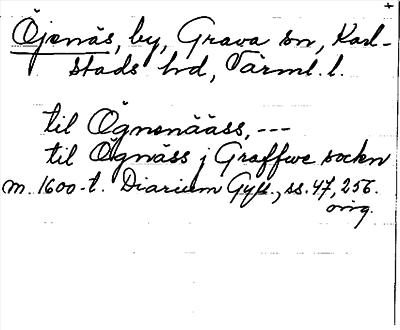 Öjenäs, by, Grava sn, Karl-
stads hd, Värml. l.
til Ögnenääss, ---
til Ögnäss j Graffwe sockn
m. 1600-t. Diarium Gyll., ss. 47, 256.
orig.